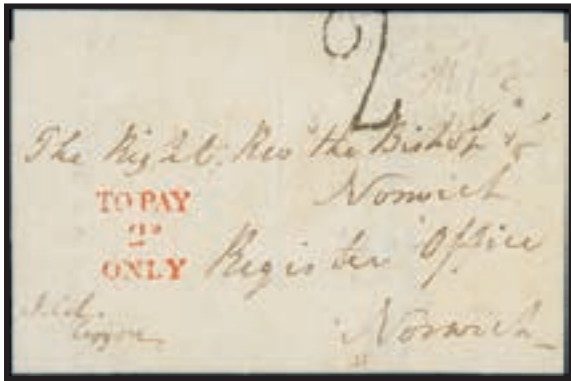 2
The Right Rev the Bishop of
Norwich
TO PAY
2D
ONLY
Register Office
Norwich